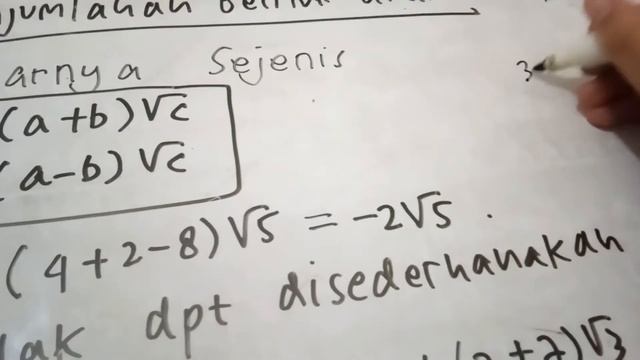 jumlahan
arnya Sejenis
3
(a+b)√c
(a-b)√c
(4+2-8)√5 = -2√5.
ak dpt disederhanakan
(2+2)√3